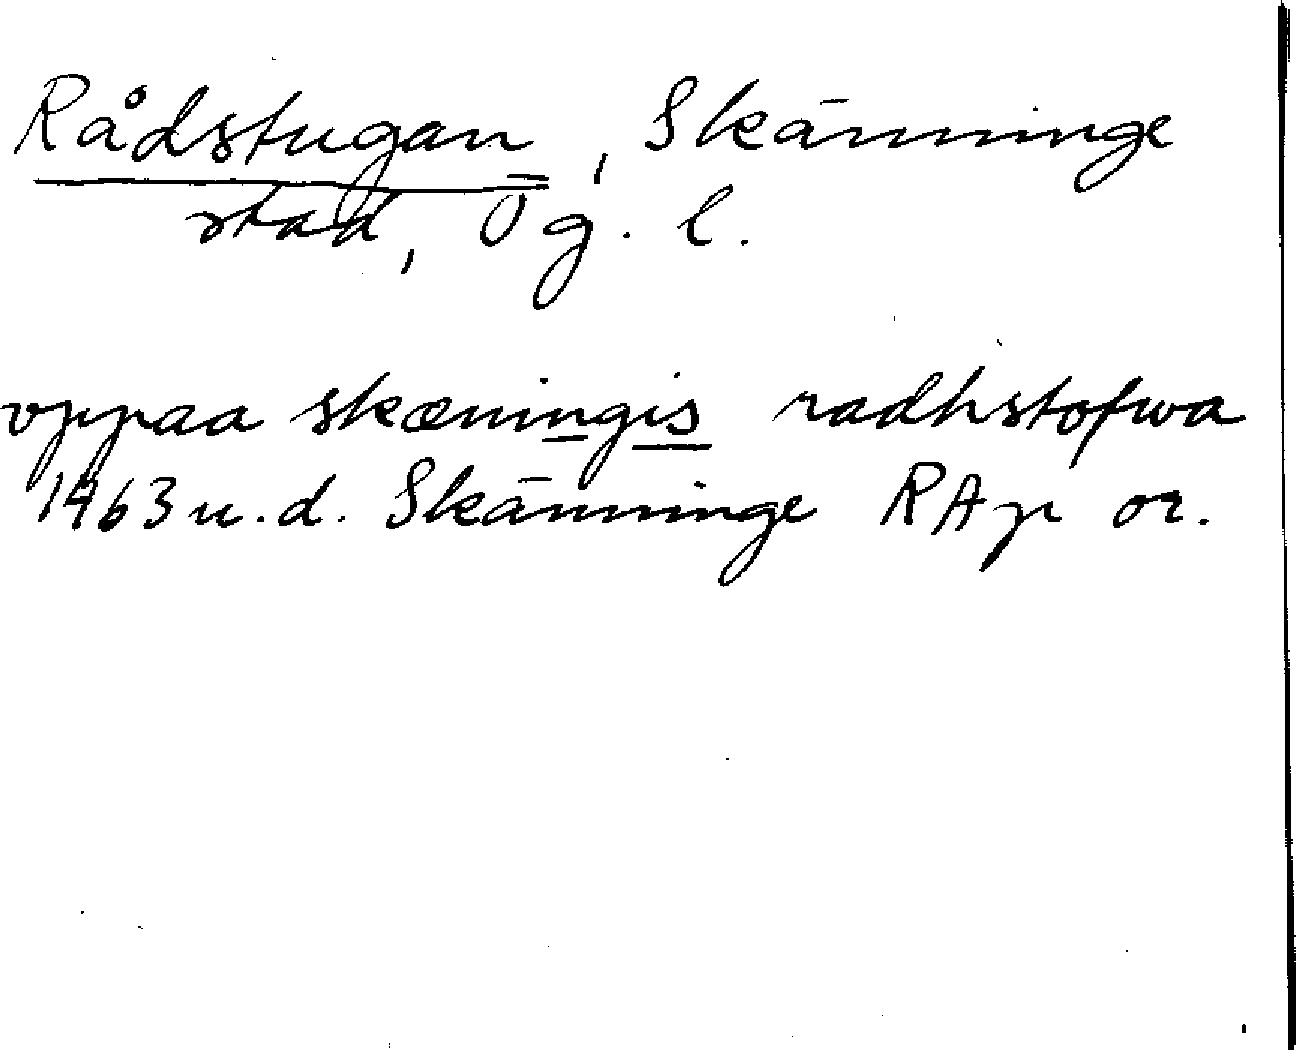 Rådstugan, Skänninge
stad, Ög. l.
vppaa skæningis radhstofwa
1463 u.d. Skänninge RAp or.